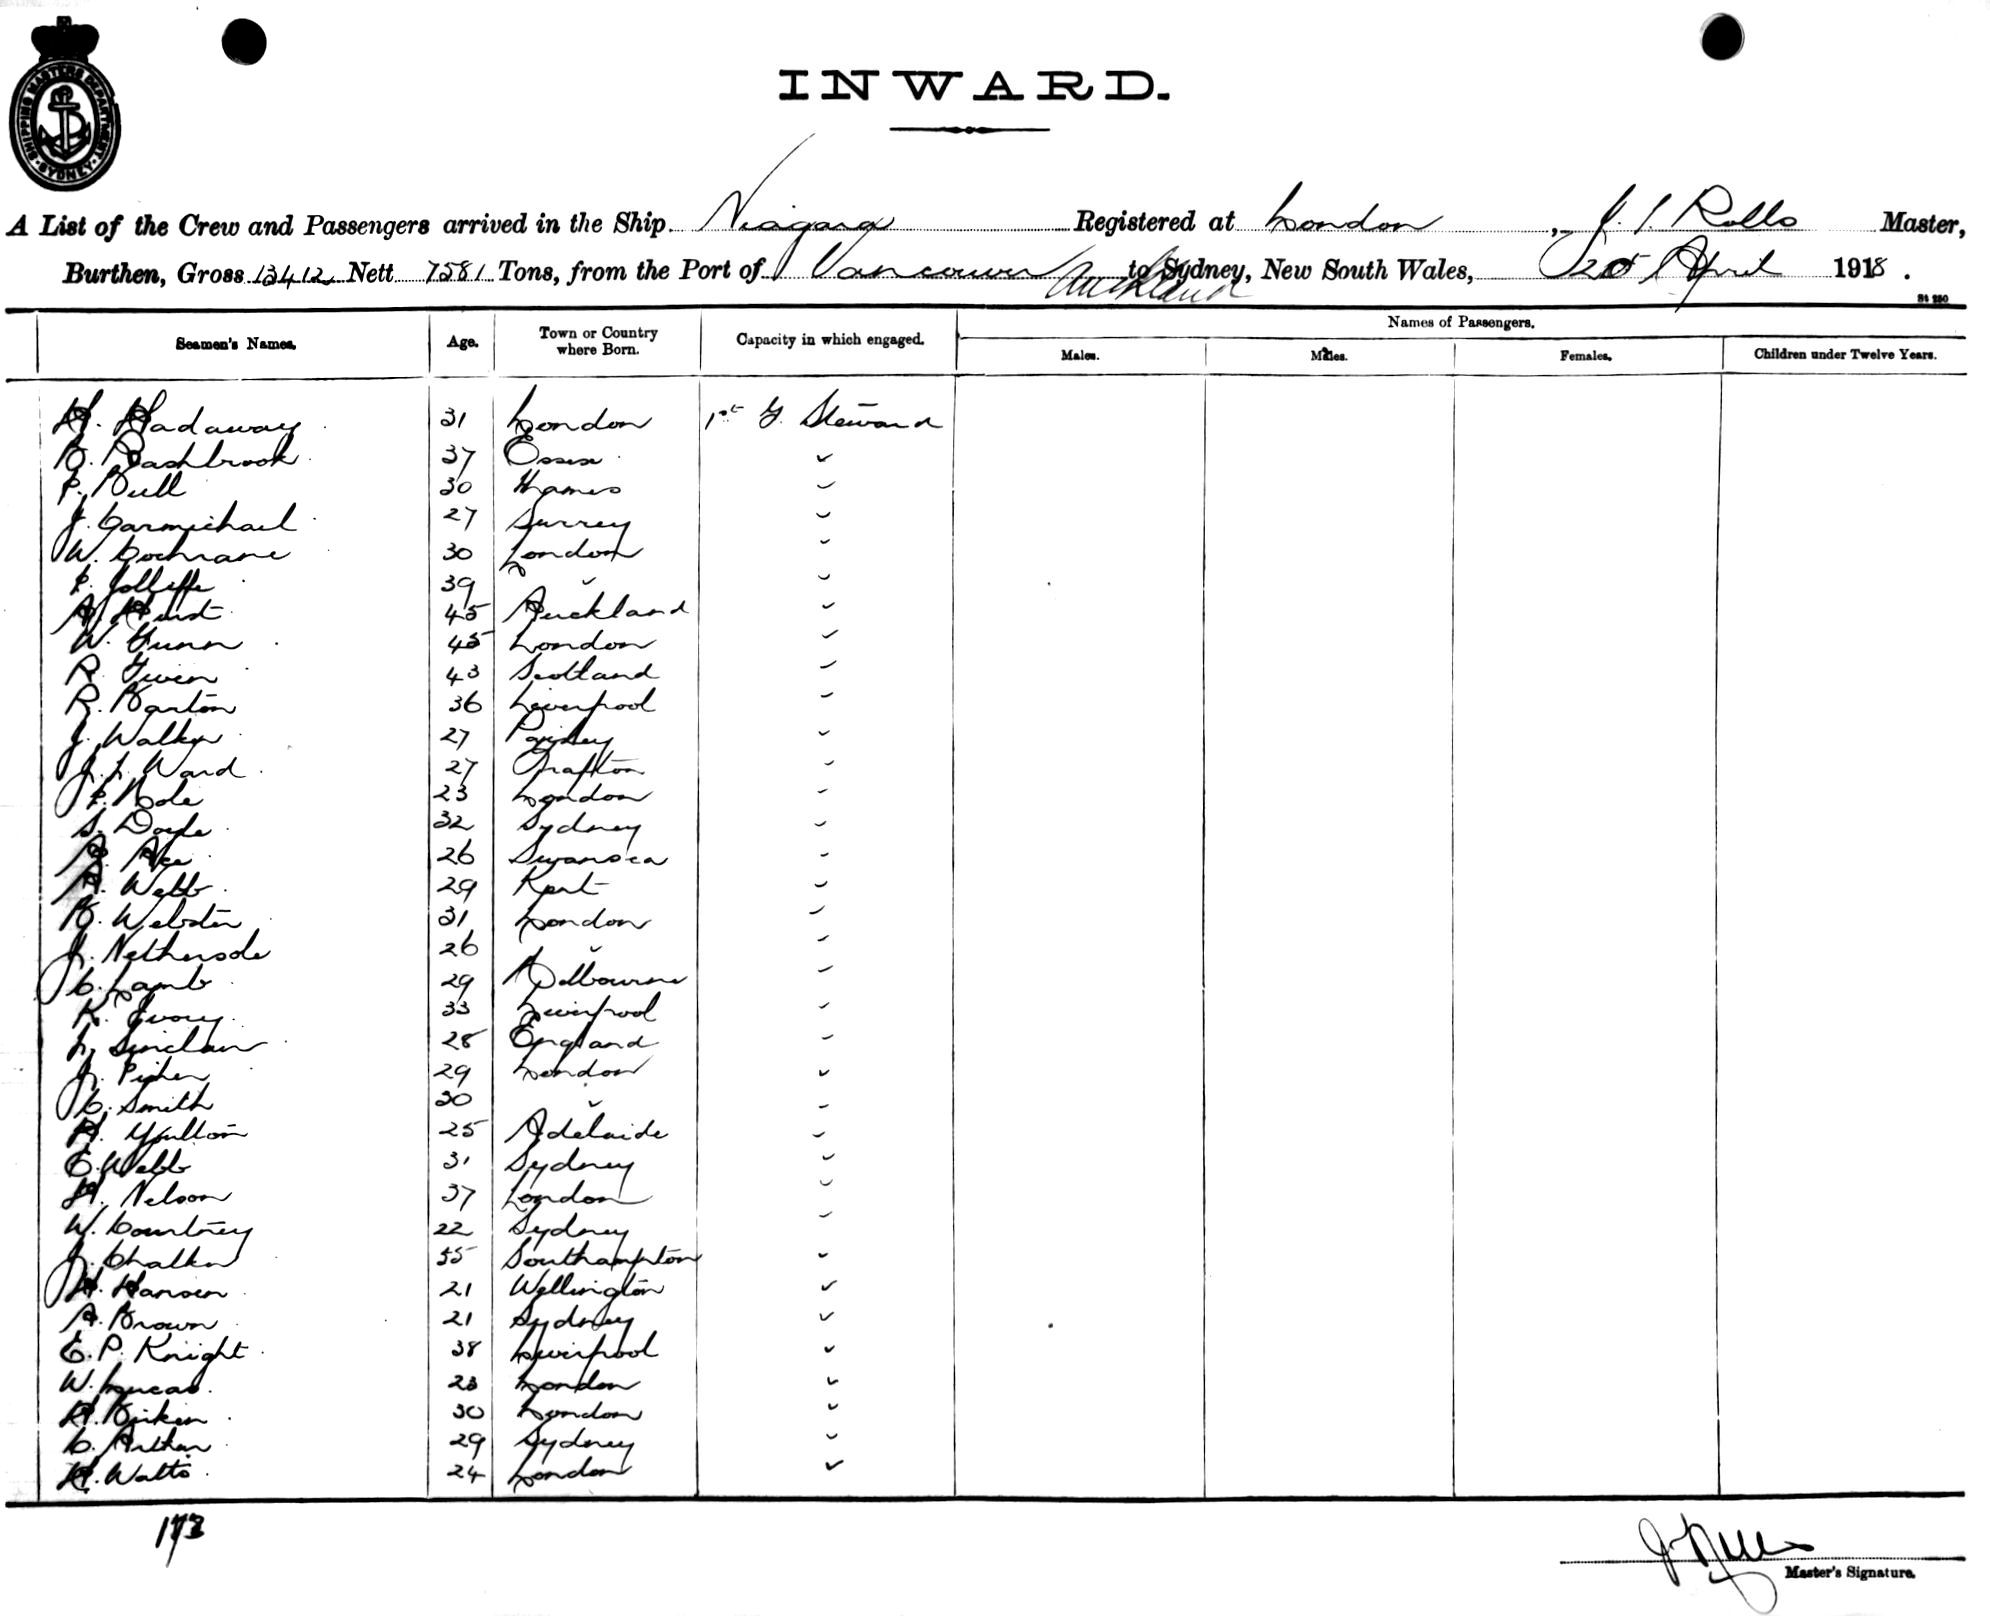 SHIPPING MASTERS DEPARTMENT
SYDNEY
INWARD.
A List of the Crew and Passengers arrived in the Ship Niagara Registered at London, J. Rolls Master,
Burthen, Gross 13412 Nett 7581 Tons, from the Port of Vancouver Auckland to Sydney, New South Wales, 20 April 1918.
St 280
Seamen's Names. Age. Town or Country where Born. Capacity in which engaged. Names of Passengers.
Males. Males. Females. Children under Twelve Years.
H. Hadaway 31 London 1st G. Steward
B. Bashbrook 37 Essex "
P. Bull 30 Thames "
J. Carmichael 27 Surrey "
W. Cochrane 30 London "
P. Jolliffe 39 " "
A. Hurst 45 Auckland "
W. Gunn 45 London "
R. Given 43 Scotland "
R. Barton 36 Liverpool "
J. Walker 27 Paisley "
J. J. Ward 27 Grafton "
P. Bole 23 London "
S. Doyle 32 Sydney "
A. Ace 26 Swansea "
A. Webb 29 Kent "
B. Webster 31 London "
J. Nethersole 26 " "
C. Lamb 29 Melbourne "
K. Ivory 33 Liverpool "
L. Sinclair 28 England "
J. Pisher 29 London "
C. Smith 30 " "
H. Youlton 25 Adelaide "
E. Webb 31 Sydney "
H. Nelson 37 London "
W. Courtney 22 Sydney "
J. Chalker 55 Southampton "
H. Hansen 21 Wellington "
A. Brown 21 Sydney "
E. P. Knight 38 Liverpool "
W. Lucas 23 London "
H. Birken 30 London "
C. Arthur 29 Sydney "
H. Watts 24 London "
173
Master's Signature.